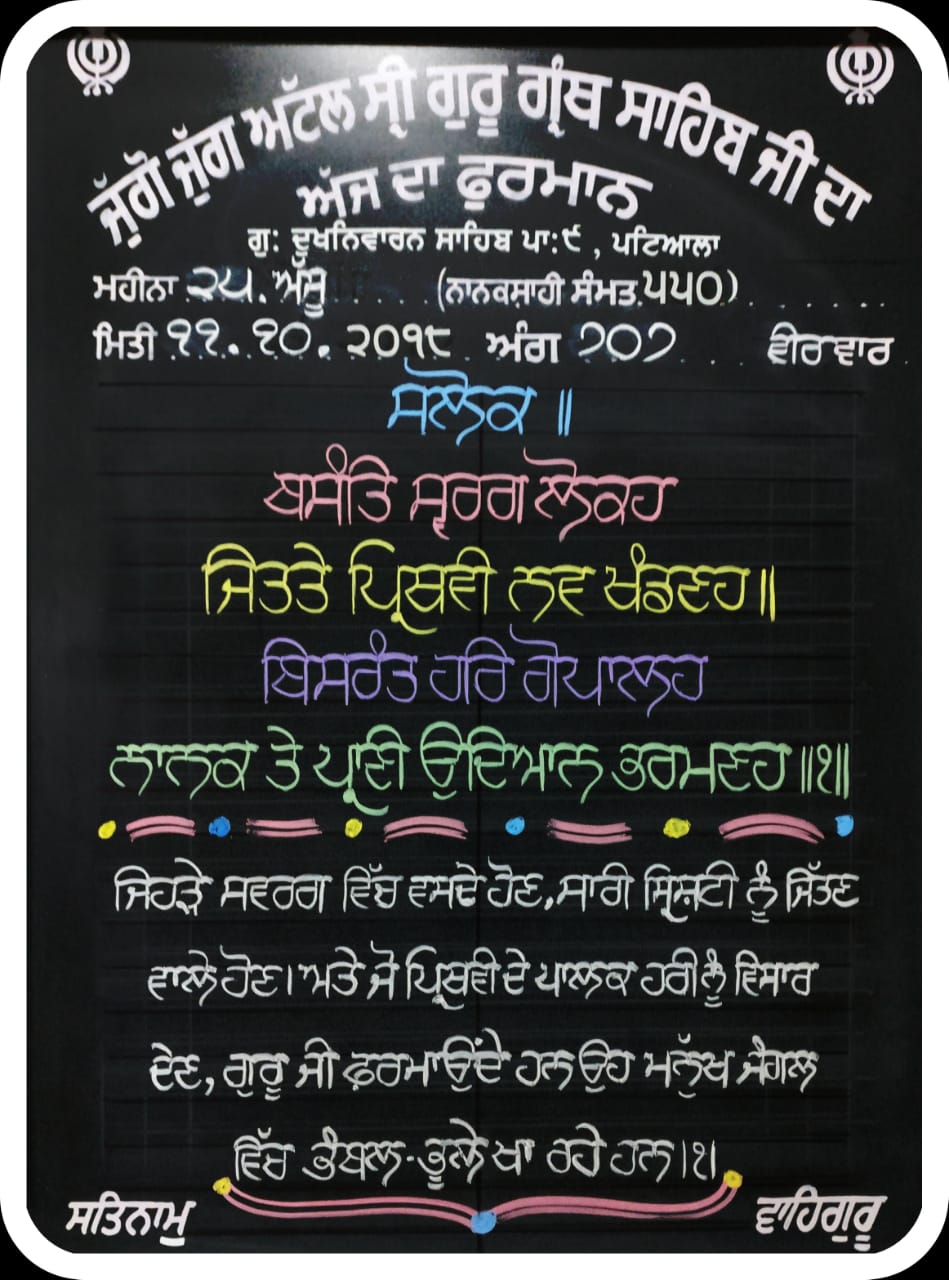 ਜੁੱਗੋ ਜੁੱਗ ਅਟੱਲ ਸ੍ਰੀ ਗੁਰੂ ਗ੍ਰੰਥ ਸਾਹਿਬ ਜੀ ਦਾ
ਅੱਜ ਦਾ ਫੁਰਮਾਨ
ਗੁ: ਦੂਖਨਿਵਾਰਨ ਸਾਹਿਬ ਪਾ:੯ , ਪਟਿਆਲਾ
ਮਹੀਨਾ ੨੫. ਅੱਸੂ (ਨਾਨਕਸ਼ਾਹੀ ਸੰਮਤ ੫੫੦)
ਮਿਤੀ ੧੧.੧੦.੨੦੧੮ ਅੰਗ ੭੦੭ ਵੀਰਵਾਰ
ਸਲੋਕ ॥
ਬਸੰਤਿ ਸ੍ਵਰਗ ਲੋਕਹ
ਜਿਤਤੇ ਪ੍ਰਿਥਵੀ ਨਵ ਖੰਡਣਹ॥
ਬਿਸਰੰਤ ਹਰਿ ਗੋਪਾਲਹ
ਨਾਨਕ ਤੇ ਪ੍ਰਾਣੀ ਉਦਿਆਨ ਭਰਮਣਹ॥੧॥
ਜਿਹੜੇ ਸਵਰਗ ਵਿੱਚ ਵਸਦੇ ਹੋਣ, ਸਾਰੀ ਸ੍ਰਿਸ਼ਟੀ ਨੂੰ ਜਿੱਤਣ
ਵਾਲੇ ਹੋਣ। ਅਤੇ ਜੋ ਪ੍ਰਿਥਵੀ ਦੇ ਪਾਲਕ ਹਰੀ ਨੂੰ ਵਿਸਾਰ
ਦੇਣ, ਗੁਰੂ ਜੀ ਫ਼ਰਮਾਉਂਦੇ ਹਨ ਉਹ ਮਨੁੱਖ ਜੰਗਲ
ਵਿੱਚ ਭੰਬਲ-ਭੂਲੇ ਖਾ ਰਹੇ ਹਨ।੧।
ਸਤਿਨਾਮੁ ਵਾਹਿਗੁਰੂ